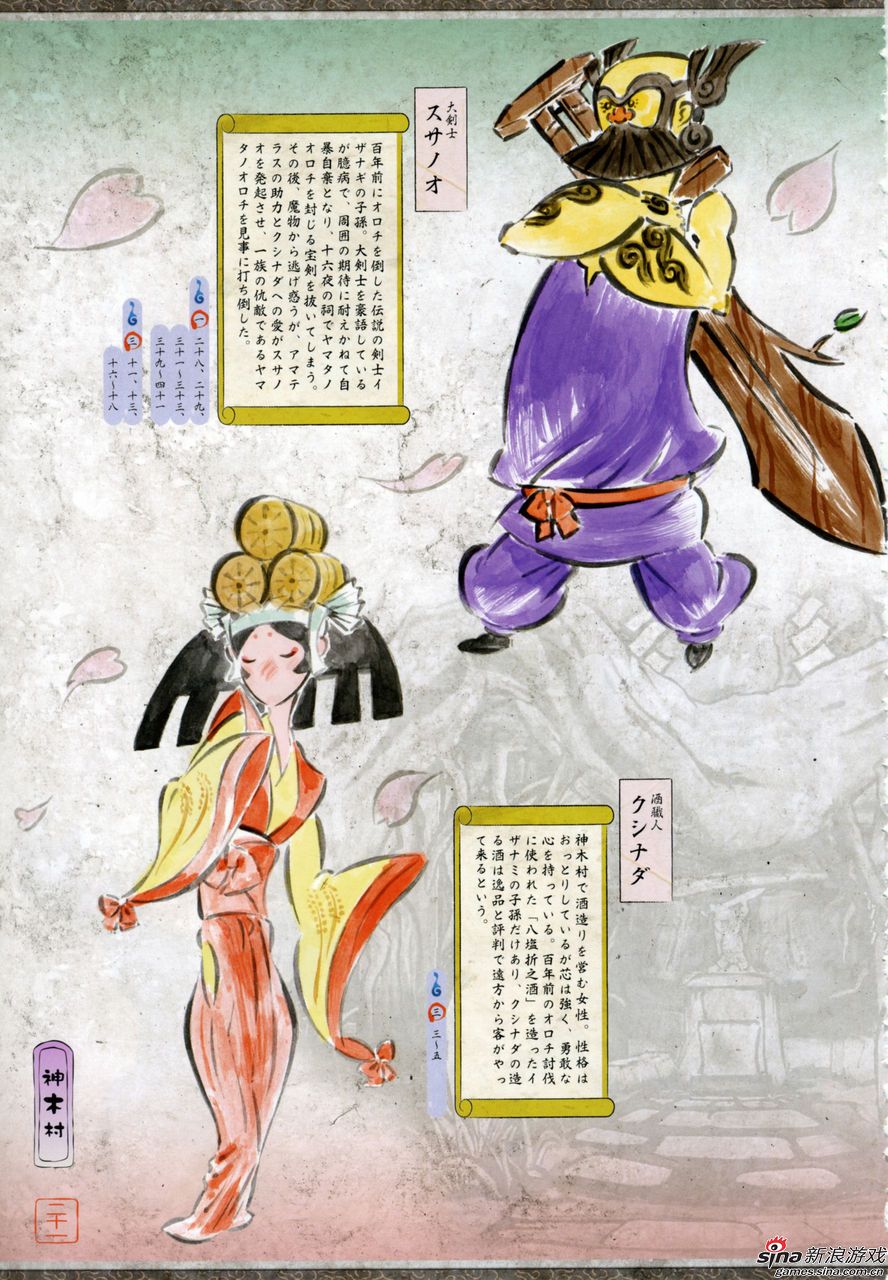 大剣士
スサノオ
百年前にオロチを倒した伝説の剣士イ
ザナギの子孫。大剣士を豪語している
が臆病で、周囲の期待に耐えかねて自
暴自棄となり、十六夜の祠でヤマタノ
オロチを封じる宝剣を抜いてしまう。
その後、魔物から逃げ惑うが、アマテ
ラスの助力とクシナダへの愛がスサノ
オを発起させ、一族の仇敵であるヤマ
タノオロチを見事に打ち倒した。
一 二十八、二十九、
三十一〜三十三、
三十九〜四十一
三 十一、十三、
十六〜十八
酒職人
クシナダ
神木村で酒造りを営む女性。性格は
おっとりしているが芯は強く、勇敢な
心を持っている。百年前のオロチ討伐
に使われた「八塩折之酒」を造ったイ
ザナミの子孫だけあり、クシナダの造
る酒は逸品と評判で遠方から客がやっ
て来るという。
三 三〜五
神木村
二十一
sina新浪游戏
games.sina.com.cn